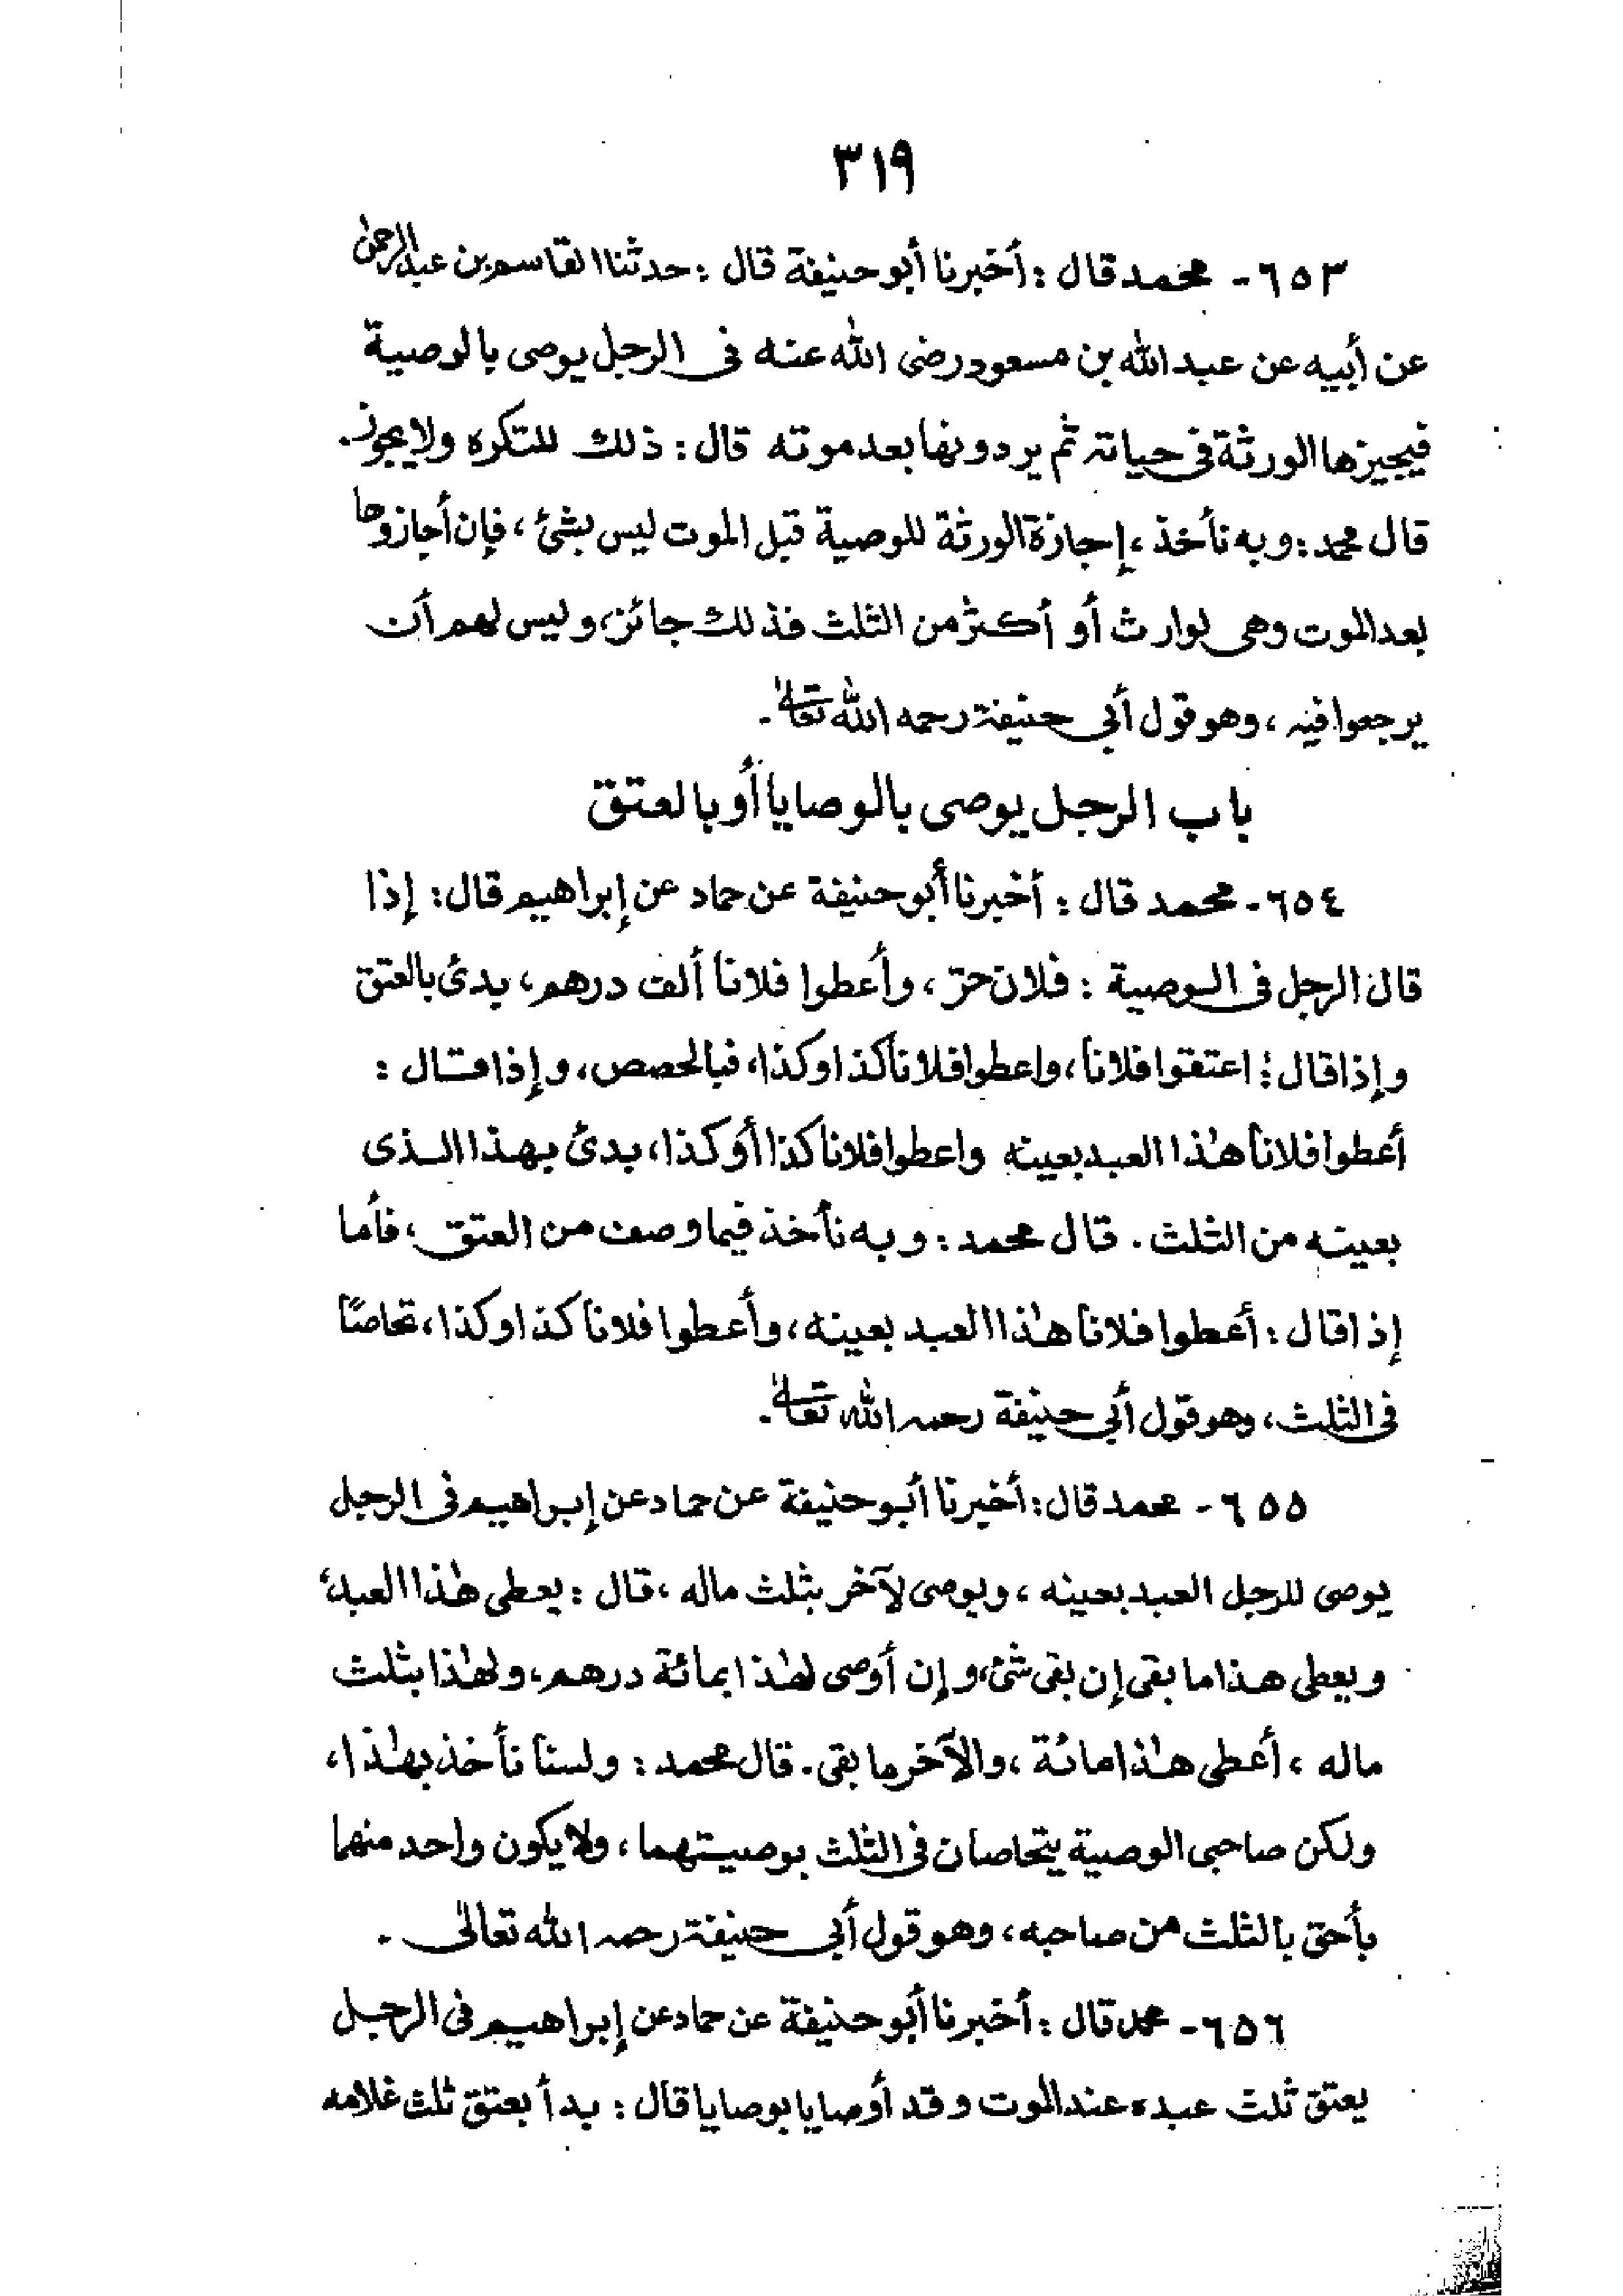 ٣١٩
٦٥٣ - محمد قال : أخبرنا أبو حنيفة قال : حدثنا القاسم بن عبد الرحمٰن
عن أبيه عن عبد الله بن مسعود رضى الله عنه فى الرجل يوصى بالوصية
فيجيزها الورثة فى حياته ثم يردونها بعد موته قال : ذلك للتكره ولا يجوز .
قال محمد : وبه نأخذ ، إجازة الورثة للوصية قبل الموت ليس بشئ ، فإن أجازوها
بعد الموت وهى لوارث أو أكثر من الثلث فذلك جائز ، وليس لهم أن
يرجعوا فيه ، وهو قول أبي حنيفة رحمه الله تعالىٰ .
باب الرجل يوصى بالوصايا أو بالعتق
٦٥٤ - محمد قال : أخبرنا أبو حنيفة عن حماد عن إبراهيم قال : إذا
قال الرجل فى الوصية : فلان حر ، وأعطوا فلانا ألف درهم ، بدئ بالعتق
وإذا قال : اعتقوا فلانا ، واعطوا فلانا كذا وكذا ، فبالحصص ، وإذا قال :
أعطوا فلانا هٰذا العبد بعينه واعطوا فلانا كذا أو كذا ، بدئ بهذا الذى
بعينه من الثلث . قال محمد : وبه نأخذ فيما وصف من العتق ، فأما
إذا قال : أعطوا فلانا هٰذا العبد بعينه ، وأعطوا فلانا كذا وكذا ، تحاصّا
فى الثلث ، وهو قول أبي حنيفة رحمه الله تعالىٰ .
٦٥٥ - محمد قال : أخبرنا أبو حنيفة عن حماد عن إبراهيم فى الرجل
يوصى للرجل العبد بعينه ، ويوصى لآخر بثلث ماله ، قال : يعطى هٰذا العبد ،
ويعطى هذا ما بقى إن بقى شئ ، وإن أوصى لهٰذا بمائة درهم ، ولهٰذا بثلث
ماله ، أعطى هٰذا مائة ، والآخر ما بقى . قال محمد : ولسنا نأخذ بهٰذا ،
ولكن صاحبى الوصية يتحاصان فى الثلث بوصيتهما ، ولا يكون واحد منهما
بأحق بالثلث من صاحبه ، وهو قول أبي حنيفة رحمه الله تعالىٰ .
٦٥٦ - محمد قال : أخبرنا أبو حنيفة عن حماد عن إبراهيم فى الرجل
يعتق ثلث عبده عند الموت وقد أوصايا بوصايا قال : بدأ بعتق ثلث غلامه